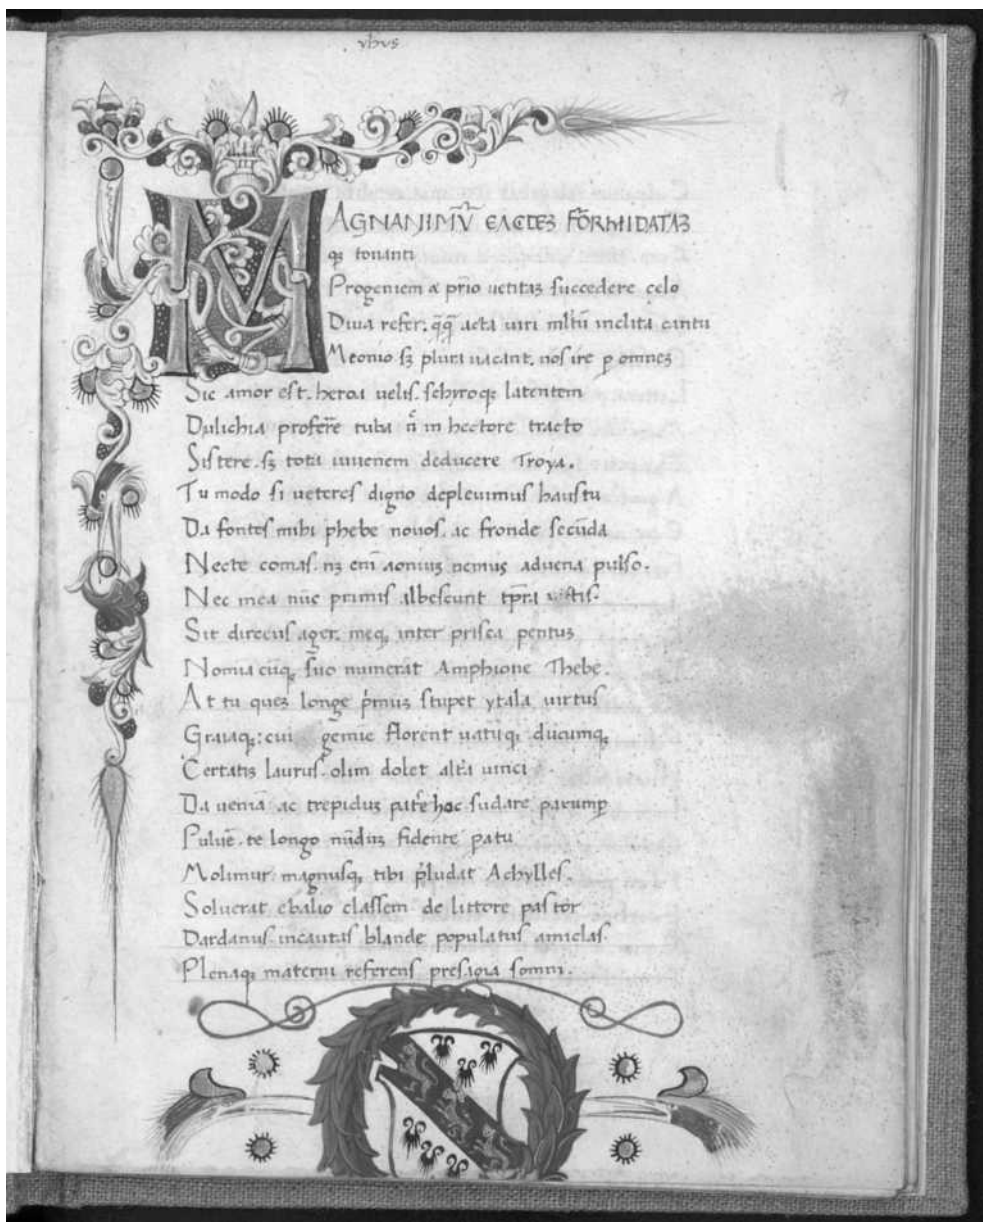 yhus
MAGNANIMŪ EACIDEꝫ FŌRMIDATAꝫ
qꝫ tonanti
Progeniem ⁊ prīo uetitaꝫ succedere celo
Diua refer. q̄q̄ acta uiri mltū inclita cantu
Meonio sꝫ plura uacant. nos ire ꝑ omneꝫ
Sic amor est. heroa uelis. schyroqꝫ latentem
Dulichia proferre tuba n̄ in hectore tracto
Sistere. sꝫ tota iuuenem deducere Troya.
Tu modo si ueteres digno depleuimus haustu
Da fontes mihi phebe nouos. ac fronde secūda
Necte comas. nꝫ enī aoniuꝫ nemus aduena pulso.
Nec mea nūc primis albescunt tp̄ra uittis.
Scit direcus ager. meqꝫ inter prisca pentuꝫ
Nomia cūqꝫ suo numerat Amphione Thebe.
At tu queꝫ longe p̄muꝫ stupet ytala uirtus
Graiaqꝫ: cui gemie florent uatūqꝫ ducumqꝫ
Certatiꝫ laurus. olim dolet alta uinci
Da ueniā ac trepiduꝫ patere hac sudare parumꝑ
Puluē. te longo nūdiuꝫ fidente patu
Molimur. magnusqꝫ tibi p̄ludat Achylles.
Soluerat ebalio classem de littore pastor
Dardanus. incautas blande populatus amiclas.
Plenaqꝫ materni referens presagia somni.